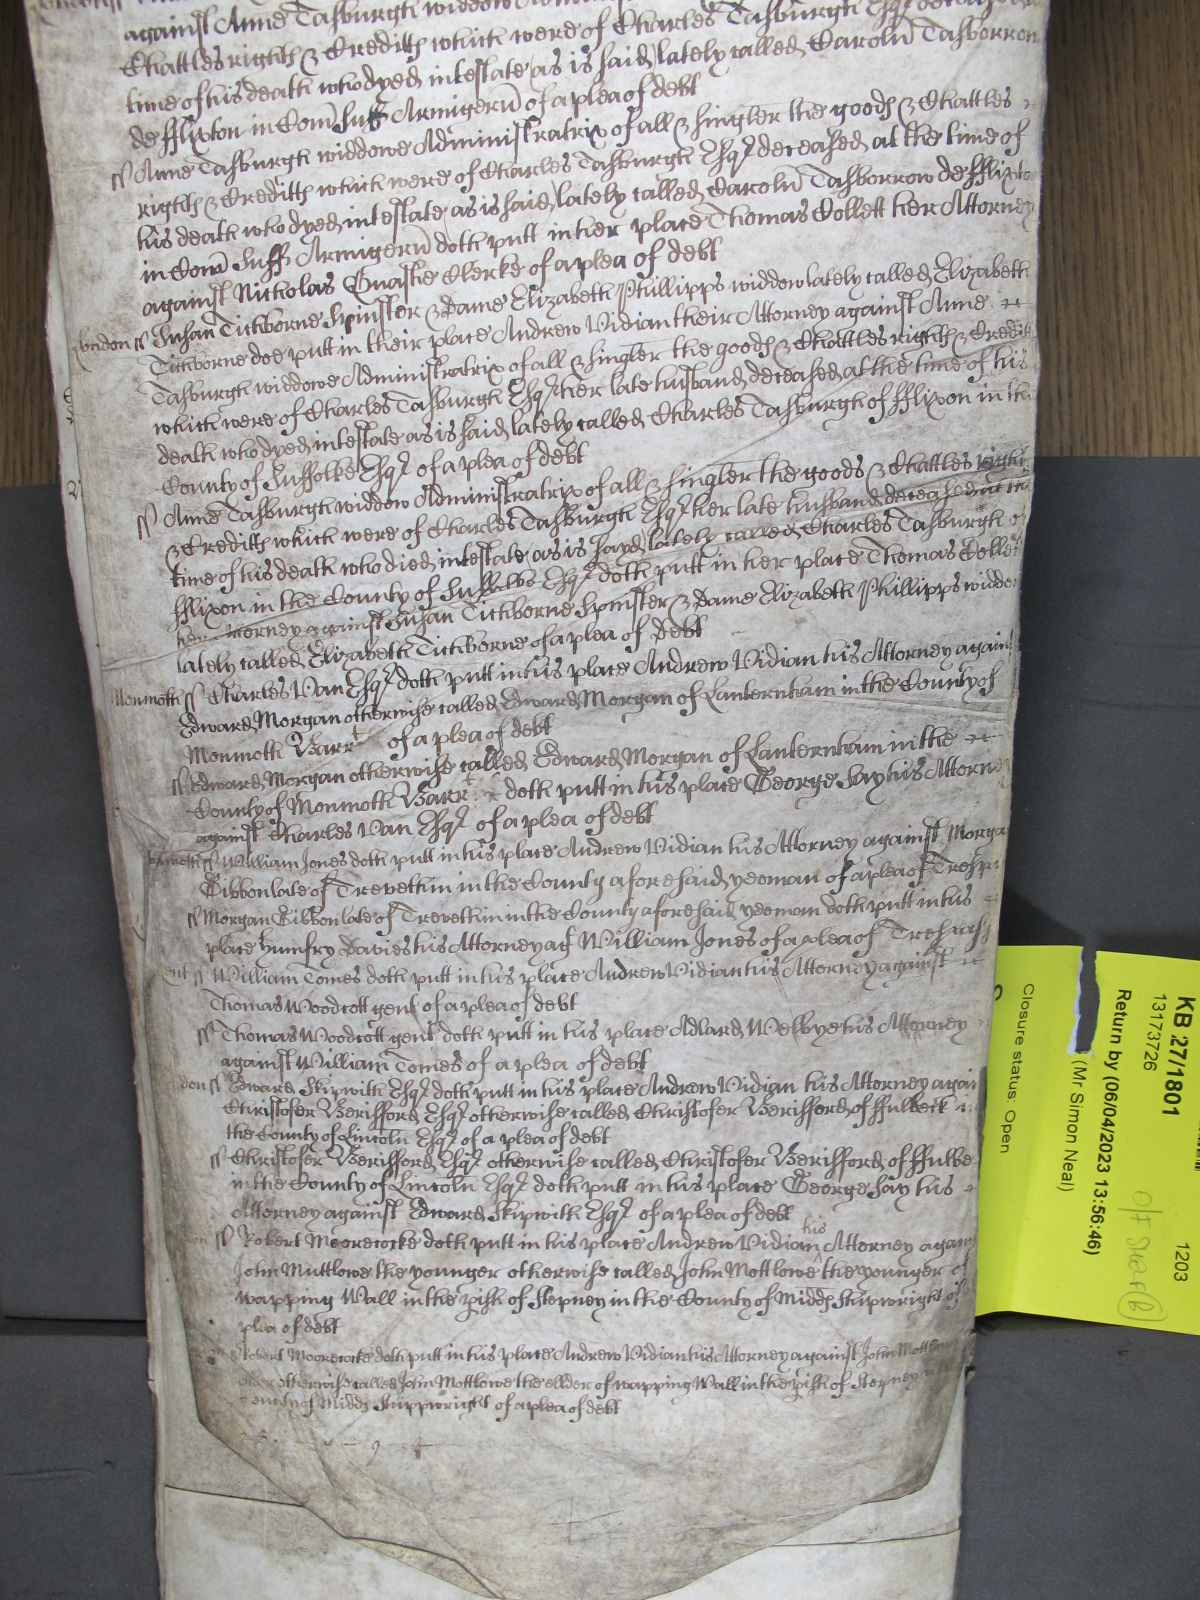 against Anne Tasburgh widdow
Chattles rights & Creditts which were of Charles Tasburgh Esqr
time of his death who dyed intestate as is said lately called Carolu Tasborrow
de fflixton in Com Suff Armigeru of a plea of debt
ss Anne Tasburgh widdowe Administratrix of all & singler the goods & Chattles
rights & Creditts which were of Charles Tasburgh Esqr deceased at the time of
his death who dyed intestate as is said lately called Carolu Tasborrow de fflixto
in Com Suff Armigeru doth putt in her place Thomas Collett her Attorney
against Nicholas Clerke of a plea of debt
London ss Susan Tichborne Spinster & Dame Elizabeth Phillipps widdow lately called Elizabeth
Tichborne doe putt in their place Andrew Vidian their Attorney against Anne
Tasburgh widdowe Administratrix of all & singler the goods & Chattles rights & Credit
which were of Charles Tasburgh Esqr her late husband deceased at the time of his
death who dyed intestate as is said lately called Charles Tasburgh of fflixon in the
County of Suffolke Esqr of a plea of debt
ss Anne Tasburgh widdow Administratrix of all & singler the goods & Chattles rights
& Creditts which were of Charles Tasburgh Esqr her late husband deceased at the
time of his death who died intestate as is sayd lately called Charles Tasburgh of
fflixon in the County of Suffolke Esqr doth putt in her place Thomas Collet
her Attorney against Susan Tichborne Spinster & Dame Elizabeth Phillipps widdow
lately called Elizabeth Tichborne of a plea of Debt
Monmoth ss Charles Van Esqr doth putt in his place Andrew Vidian his Attorney against
Edward Morgan otherwise called Edward Morgan of Lanternham in the County of
Monmoth Barrt of a plea of debt
ss Edward Morgan otherwise called Edward Morgan of Lanternham in the
County of Monmoth Barrt doth putt in his place George Say his Attorney
against Charles Van Esqr of a plea of debt
ss William Jones doth putt in his place Andrew Vidian his Attorney against Morga
Gibbon late of Trevethin in the County aforesaid yeoman of a plea of Tresp
ss Morgan Gibbon late of Trevethin in the County aforesaid yeoman doth putt in his
place Humfry Davies his Attorney agt William Jones of a plea of Trespass
ent ss William Tomes doth putt in his place Andrew Vidian his Attorney against
Thomas Woodcott gent of a plea of debt
ss Thomas Woodcott gent doth putt in his place Adlard Welbye his Attorney
against William Tomes of a plea of debt
don ss Edward Skipwith Esqr doth putt in his place Andrew Vidian his Attorney again
Christofer Berisford Esqr otherwise called Christofer Berisford of ffulbeck in
the County of Lincoln Esqr of a plea of debt
ss Christofer Berisford Esqr otherwise called Christofer Berisford of ffulbe
in the County of Lincoln Esqr doth putt in his place George Say his
Attorney against Edward Skipwith Esqr of a plea of debt
don ss Robert Moorecocke doth putt in his place Andrew Vidian his Attorney again
John Muttlowe the younger otherwise called John Mottlowe the younger of
Wapping Wall in the pish of Stepney in the County of Midds Shipwright of a
plea of debt
ss Robert Moorecocke doth putt in his place Andrew Vidian his Attorney against John Mottlow
elder otherwise called John Mottlowe the ellder of wapping Wall in the pish of Stepney
County of Midds Shippwright of a plea of debt
KB 27/1801
13173726
1203
Return by (06/04/2023 13:56:46)
(Mr Simon Neal)
Closure status: Open